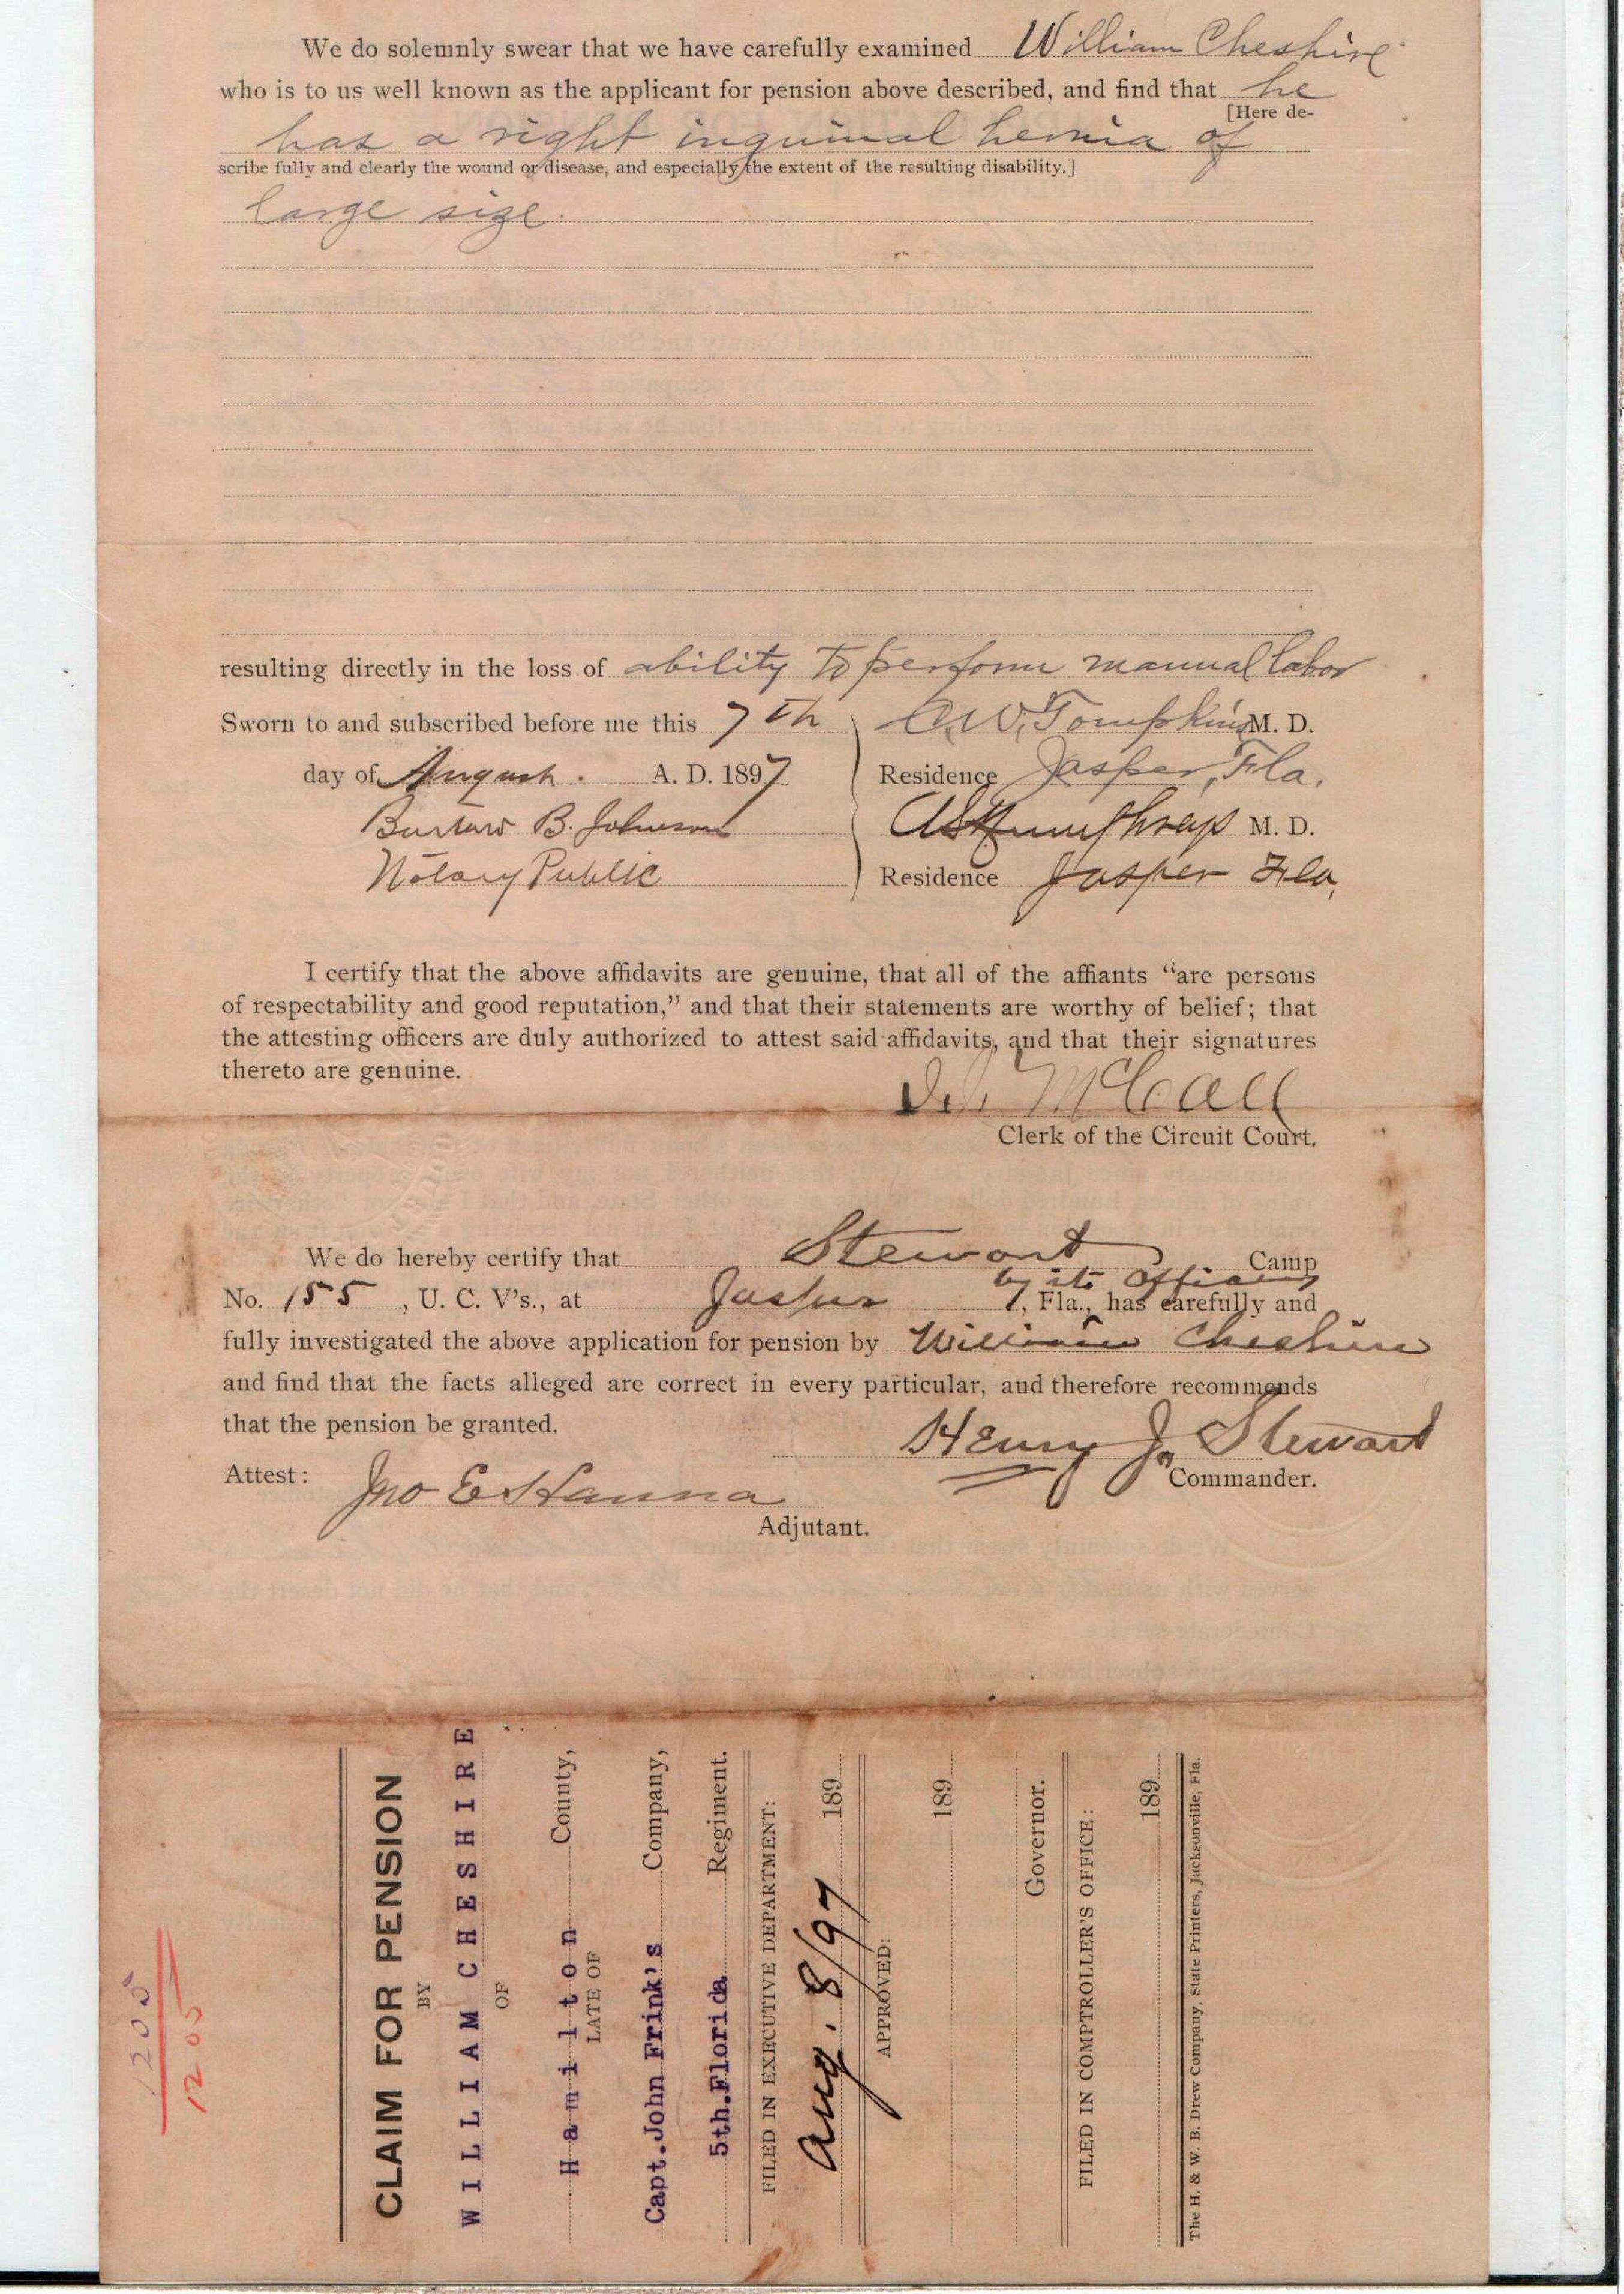 We do solemnly swear that we have carefully examined William Cheshire
who is to us well known as the applicant for pension above described, and find that he
[Here de-
has a right inguinal hernia of
scribe fully and clearly the wound or disease, and especially the extent of the resulting disability.]
large size.
resulting directly in the loss of ability to perform manual labor
Sworn to and subscribed before me this 7th C.W. Tompkins M. D.
day of August. A. D. 1897 Residence Jasper, Fla.
B. Johnson Humphreys M. D.
Notary Public Residence Jasper Fla,
I certify that the above affidavits are genuine, that all of the affiants “are persons
of respectability and good reputation,” and that their statements are worthy of belief; that
the attesting officers are duly authorized to attest said affidavits, and that their signatures
thereto are genuine.
McCall
Clerk of the Circuit Court.
We do hereby certify that Stewart Camp
by its Officers
No. 155, U. C. V's., at Jasper, Fla., has carefully and
fully investigated the above application for pension by William Cheshire
and find that the facts alleged are correct in every particular, and therefore recommends
that the pension be granted.
Henry J. Stewart
Commander.
Attest: Jno E Hanna
Adjutant.
1205
1205
CLAIM FOR PENSION
BY
WILLIAM CHESHIRE
OF
Hamilton County,
LATE OF
Capt. John Frink's Company,
5th. Florida Regiment.
FILED IN EXECUTIVE DEPARTMENT:
Aug. 8/97 189
APPROVED:
189
Governor.
FILED IN COMPTROLLER'S OFFICE:
189
The H. & W. B. Drew Company, State Printers, Jacksonville, Fla.